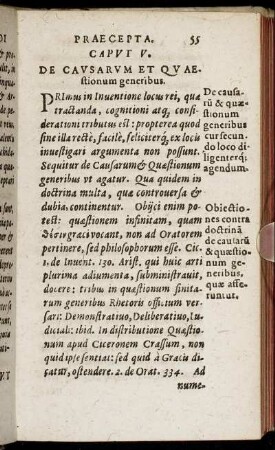 PRAECEPTA. 55
CAPVT V.
DE CAVSARVM ET QVAE-
stionum generibus.
PRimus in Inuentione locus rei, quæ
tractanda, cognitioni atq; consi-
derationi tributus est: propterea quod
sine illa rectè, facilè, feliciterq; ex locis
inuestigari argumenta non possunt.
Sequitur de Causarum & Quæstionum
generibus vt agatur. Qua quidem in
doctrina multa, quæ controuersa &
dubia, continentur. Obijci enim po-
test: quæstionem infinitam, quam
Græci vocant, non ad Oratorem
pertinere, sed philosophorum esse. Ci-
c. de Inuent. 130. Arist. qui huic arti
plurima adiumenta, subministrauit,
docere: tribus in quæstionum finita-
rum generibus Rhetoris officium ver-
sari: Demonstratiuo, Deliberatiuo, Iu-
diciali: ibid. In distributione Quæstio-
num apud Ciceronem Crassum, non
quid ipse sentiat: sed quid à Græcis di-
catur, ostendere. 2. de Orat. 334. Ad
nume-
De causa-
rū & quæ-
stionum
generibus
cur secun-
do loco di-
ligenterq;
agendum.
Obiectio-
nes contra
doctrinā
de causarū
& quæstio-
num ge-
neribus,
quæ affe-
runtur.